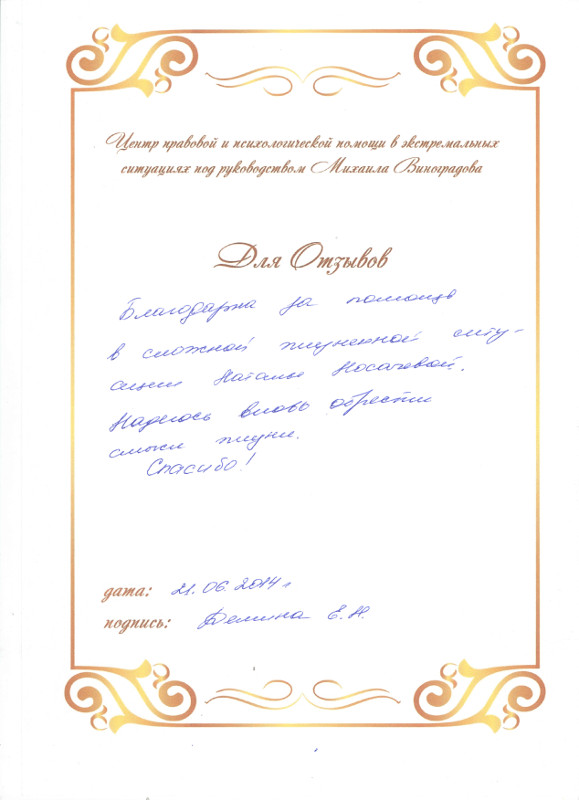 Центр правовой и психологической помощи в экстремальных
ситуациях под руководством Михаила Виноградова
Для Отзывов
Благодарна за помощь
в сложной жизненной ситу-
ации Наталье Носачевой.
Надеюсь вновь обрести
смысл жизни.
Спасибо!
дата: 21.06.2014 г
подпись: Демина Е.Н.